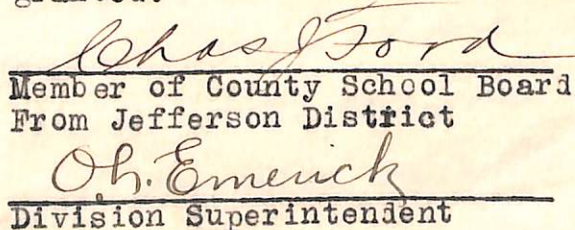 Chas J Ford
Member of County School Board
From Jefferson District
O. L. Emerick
Division Superintendent